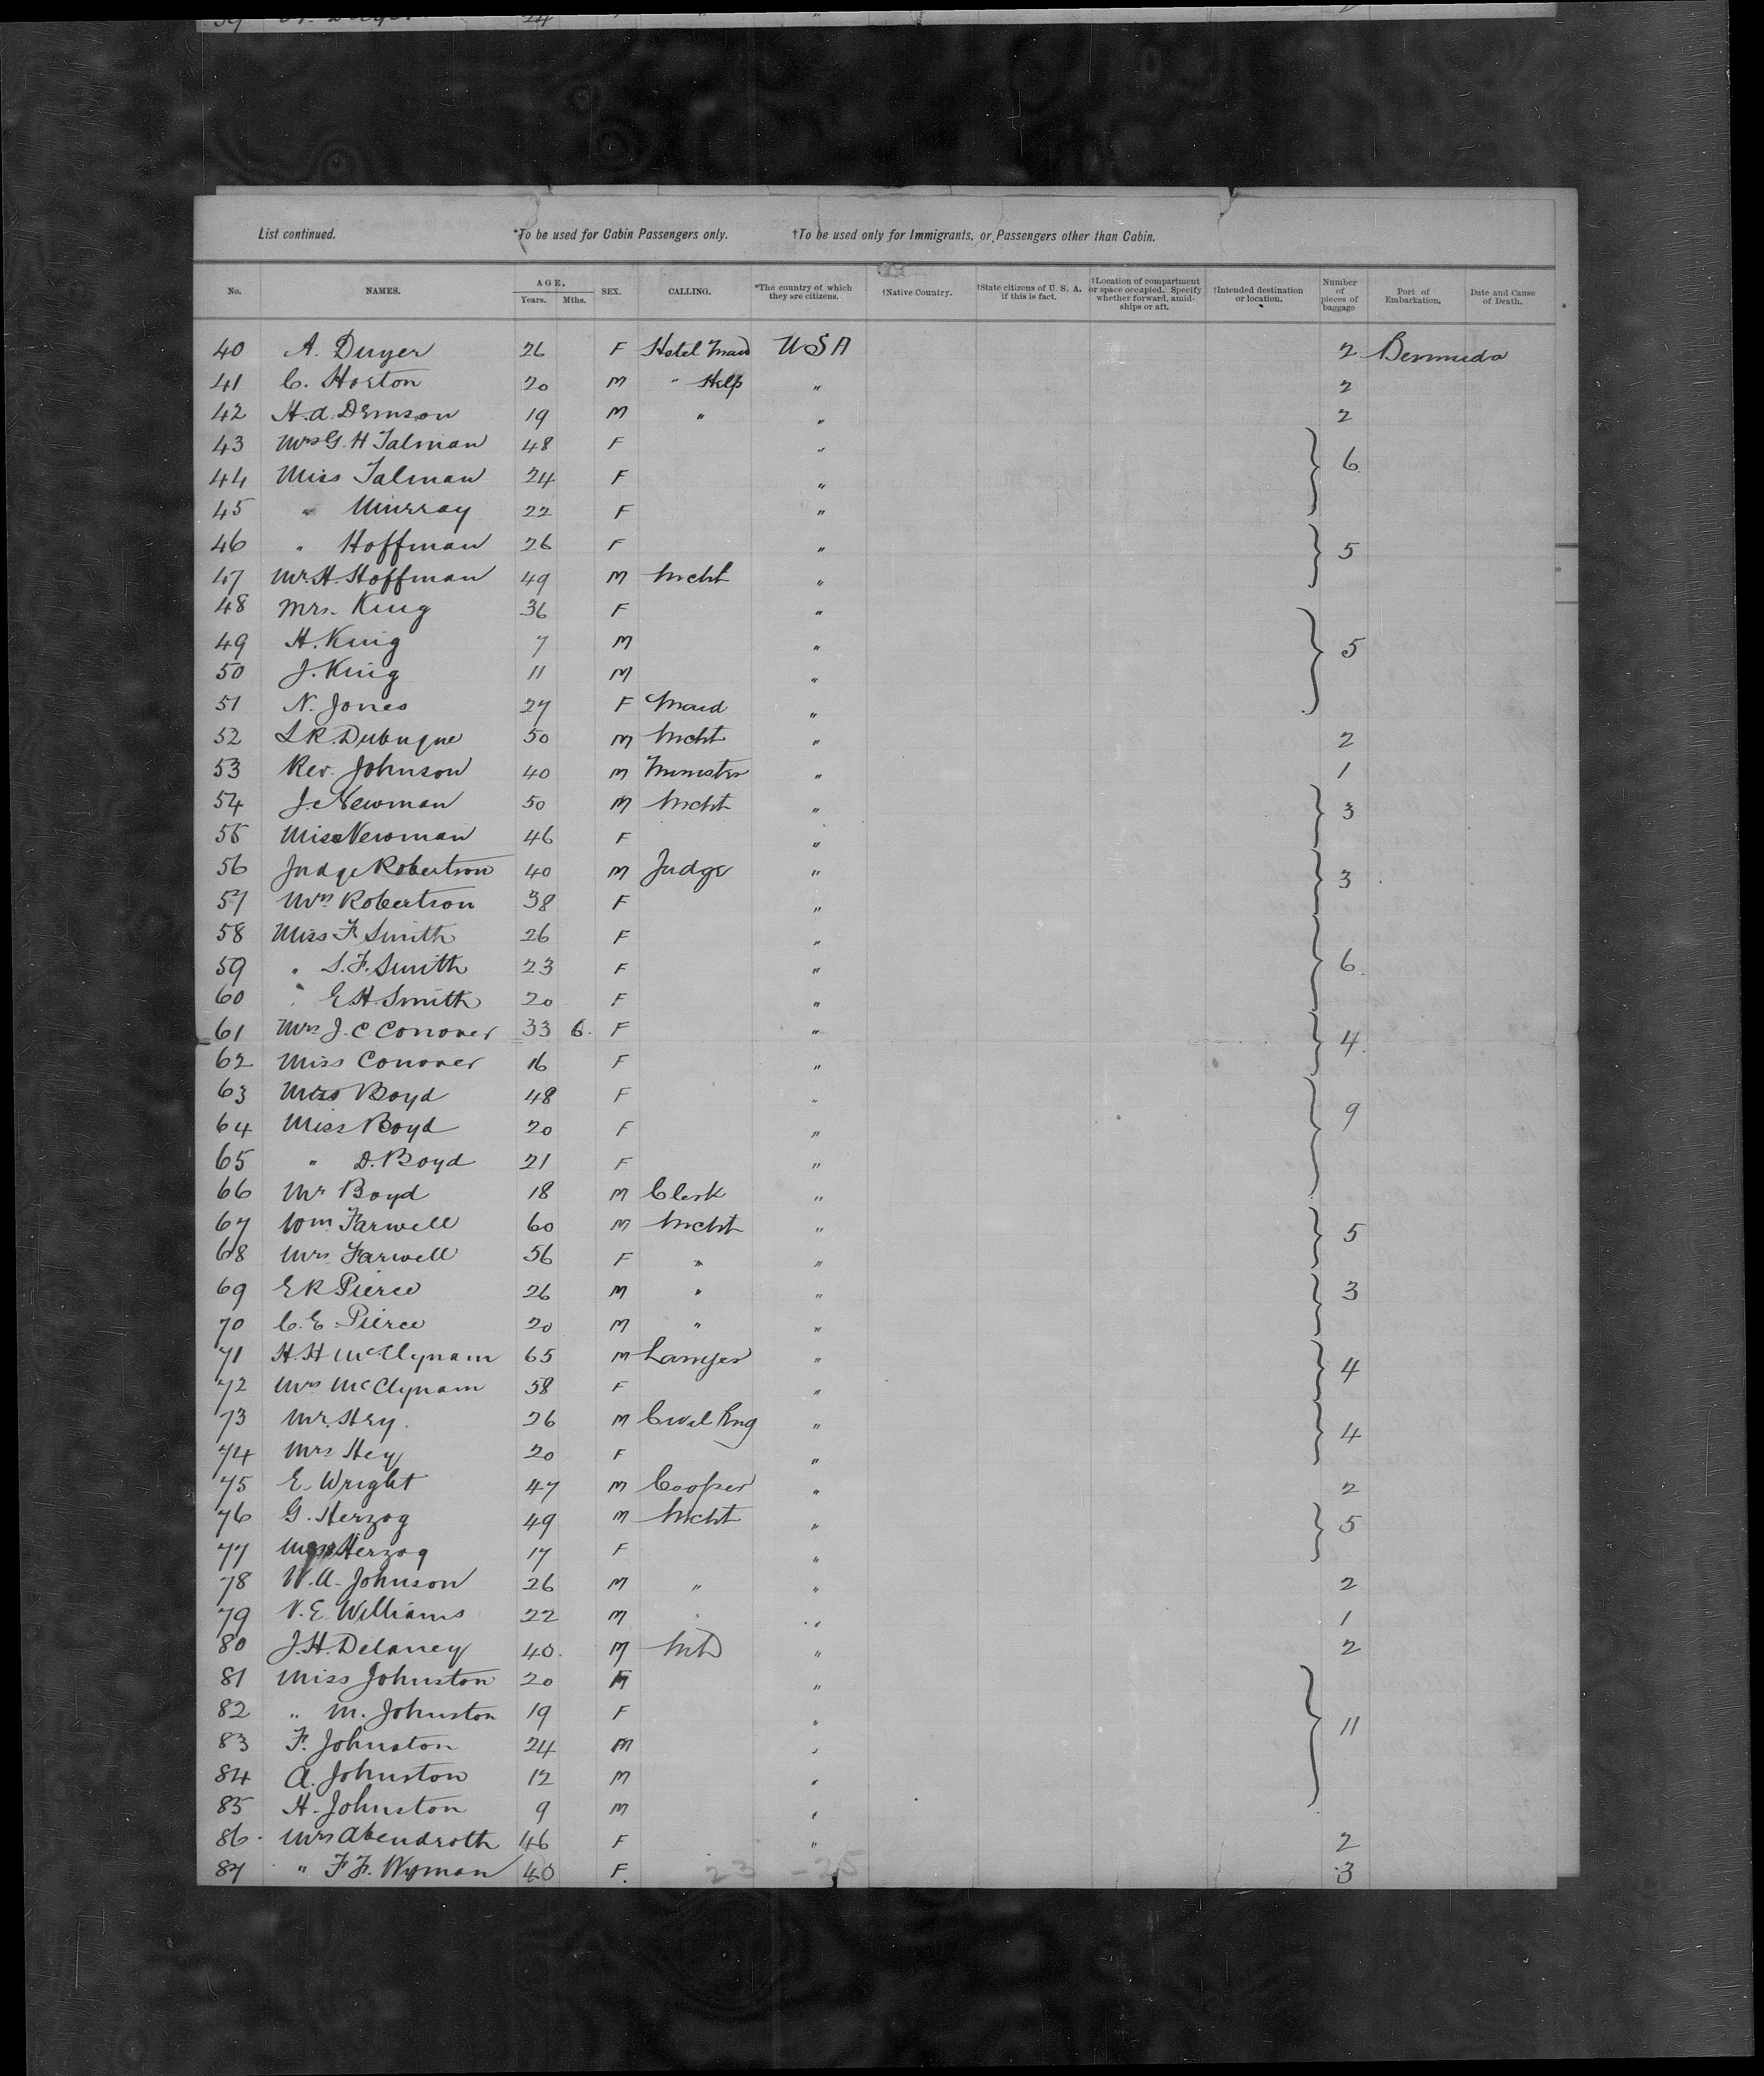 List continued. *To be used for Cabin Passengers only. †To be used only for Immigrants, or Passengers other than Cabin.
No. NAMES. AGE. Years. Mths. SEX. CALLING. *The country of which they are citizens. †Native Country. †State citizens of U. S. A. if this is fact. †Location of compartment or space occupied. Specify whether forward, amid-ships or aft. †Intended destination or location. Number of pieces of baggage Port of Embarkation. Date and Cause of Death.
40 A. Dwyer 26 F Hotel Maid USA 2 Bermuda
41 C. Horton 20 M " Help " 2
42 H.A. Denison 19 M " " 2
43 Mrs G. H Talman 48 F "
44 Miss Talman 24 F " 6
45 " Murray 22 F "
46 " Hoffman 26 F " 5
47 Mr. H. Hoffman 49 M Mcht "
48 Mrs. King 36 F "
49 H. King 7 M " 5
50 J. King 11 M "
51 N. Jones 27 F Maid "
52 L R. Dubuque 50 M Mcht " 2
53 Rev. Johnson 40 M Minister " 1
54 J. Newman 50 M Mcht " 3
55 Miss Newman 46 F "
56 Judge Robertson 40 M Judge " 3
57 Mrs Robertson 38 F "
58 Miss F Smith 26 F "
59 " S. F. Smith 23 F " 6
60 " E H Smith 20 F "
61 Mrs J. C Conover 33 6. F " 4
62 Miss Conover 16 F "
63 Boyd 48 F " 9
64 Miss Boyd 20 F "
65 " D. Boyd 21 F "
66 Mr Boyd 18 M Clerk "
67 Wm Farwell 60 M Mcht " 5
68 Mrs Farwell 56 F " "
69 E R Pierce 26 M " " 3
70 C. E. Pierce 20 M " "
71 H. H McClynam 65 M Lawyer " 4
72 Mrs McClynam 58 F "
73 Mr. Hey. 26 M Civil Eng " 4
74 Mrs Hey 20 F "
75 E. Wright 47 M Cooper " 2
76 G. Herzog 49 M Mcht " 5
77 Herzog 17 F "
78 W. A. Johnson 26 M " " 2
79 V. E. Williams 22 M " " 1
80 J. H. Delaney 40. M MD " 2
81 Miss Johnston 20 F "
82 " M. Johnston 19 F " 11
83 F. Johnston 24 M "
84 A. Johnston 12 M "
85 H. Johnston 9 M "
86 Mrs Abendroth 46 F " 2
87 " F F. Wyman 40 F. 3
23 - 25